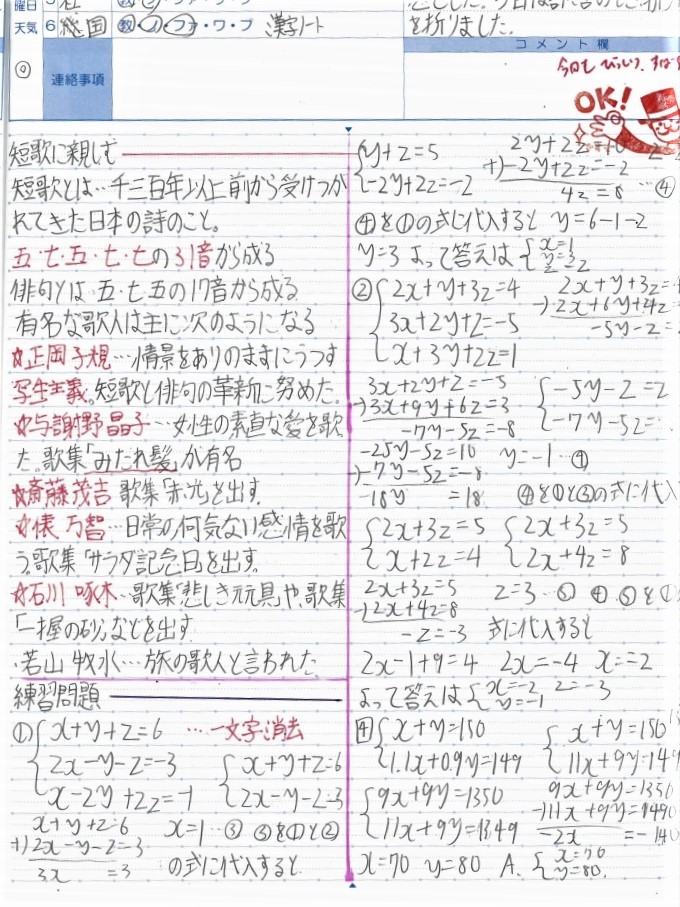 曜日
天気 6 総 国 教・ノ・ファ・ワ・プ 漢字ノート
を折りました。
コメント欄
連絡事項
OK!
短歌に親しむ
短歌とは…千三百年以上前から受けつが
れてきた日本の詩のこと。
五・七・五・七・七の31音から成る
俳句とは五・七・五の17音から成る
有名な歌人は主に次のようになる
☆正岡子規…情景をありのままにうつす
写生主義。短歌と俳句の革新に努めた。
☆与謝野晶子…女性の素直な愛を歌
た。歌集「みだれ髪」が有名
☆斎藤茂吉 歌集「赤光」を出す
☆俵 万智…日常の何気ない感情を歌
う。歌集「サラダ記念日」を出す。
☆石川 啄木…歌集「悲しき玩具」や、歌集
「一握の砂」などを出す
・若山 牧水…旅の歌人と言われた
練習問題
① x+y+z=6 …一文字消去
2x-y-z=-3 x+y+z=6
x-2y+2z=-1 2x-y-z=3
x+y+z=6 x=1…③ ③を①と②
+)2x-y-z=3
3x =3 の式に代入すると
y+z=5
-2y+2z=-2
+)-2y+2z=-2
4z=8 …④
④を①の式に代入すると y=6-1-2
y=3 よって答えは x=1 y=3 z=2
② 2x+y+3z=4 2x+y+3z=4
3x+2y+z=-5 -)2x+6y+4z=
x+3y+2z=1 -5y-z=
3x+2y+z=-5 -5y-z=2
-)3x+9y+6z=3 -7y-5z=
-7y-5z=-8
-25y-5z=10 y=-1…④
-)-7y-5z=-8
-18y =18 ④を①と③の式に代入
2x+3z=5 2x+3z=5
x+2z=4 2x+4z=8
2x+3z=5 z=3…⑤ ④⑤を①
-)2x+4z=8
-z=-3 式に代入すると
2x-1+9=4 2x=-4 x=-2
よって答えは x=-2 y=-1 z=-3
4 x+y=150 x+y=150
1.1x+0.9y=149 11x+9y=149
9x+9y=1350 9x+9y=1350
11x+9y=1349 -)11x+9y=1490
-2x =-140
x=70 y=80 A. x=70 y=80.